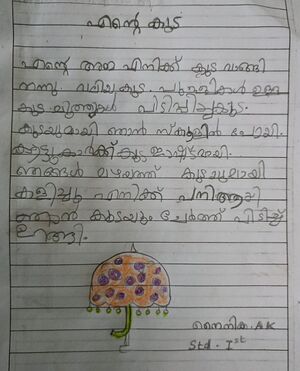 എന്റെ കുട
എന്റെ അമ്മ എനിക്ക് കുട വാങ്ങി
തന്നു വലിയകുട. പുള്ളികൾ ഉള്ള
കുട. മുത്തുകൾ പിടിപ്പിച്ചകുട.
കുടയുമായി ഞാൻ സ്കൂളിൽ പോയി.
കൂട്ടുകാർക്ക് കുട ഇഷ്ടമായി.
ഞങ്ങൾ മഴയത്ത് കുടയുമായി
കളിച്ചു എനിക്ക് പനിആയി
ഞാൻ കുടയും ചേർത്ത് പിടിച്ച്
ഉറങ്ങി.
നൈനിക. A K
Std. Ist